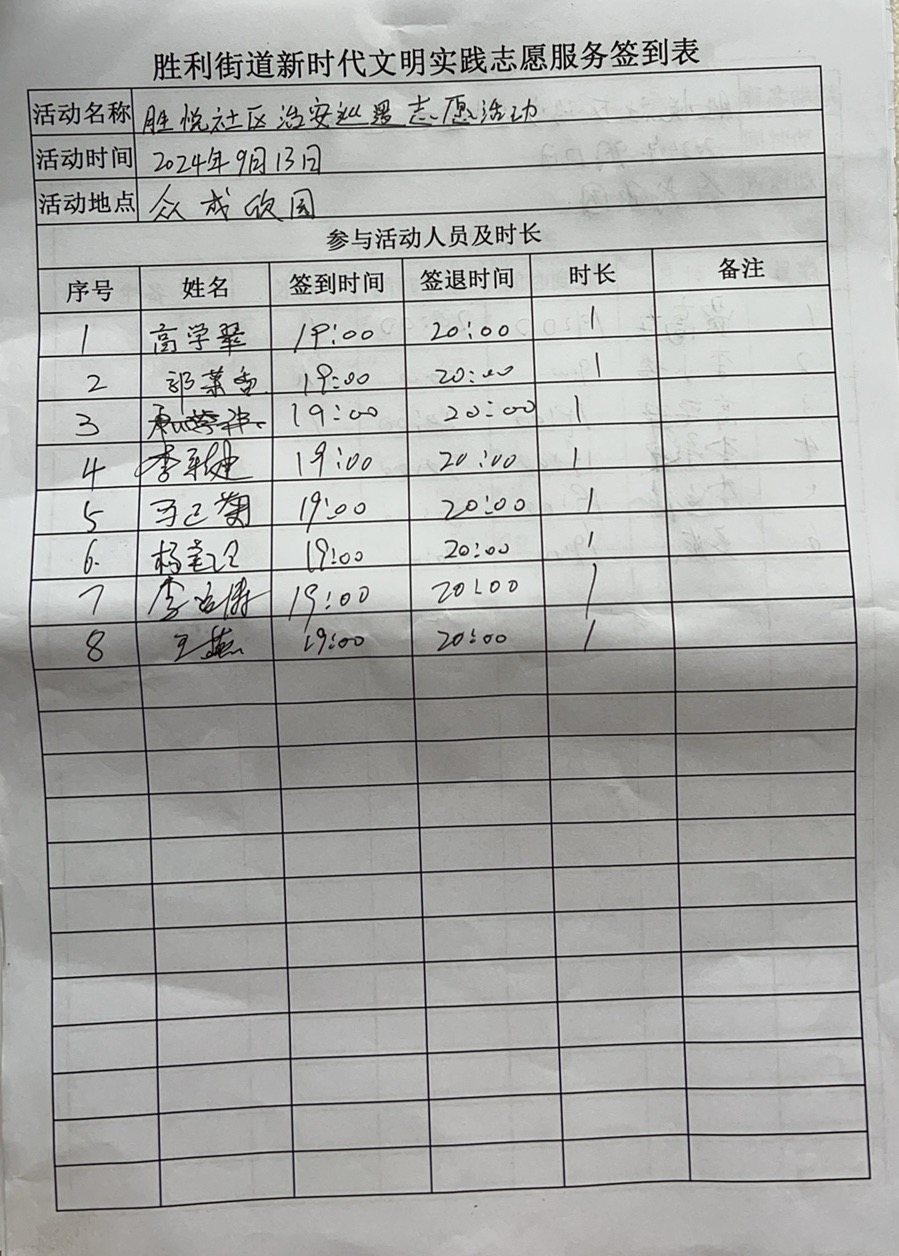 胜利街道新时代文明实践志愿服务签到表
活动名称 胜悦社区治安巡逻志愿活动
活动时间 2024年9月13日
活动地点 众成欣园
参与活动人员及时长
序号 姓名 签到时间 签退时间 时长 备注
1 高学翠 19:00 20:00 1
2 19:00 20:00 1
3 19:00 20:00 1
4 19:00 20:00 1
5 19:00 20:00 1
6. 19:00 20:00 1
7 19:00 20:00 1
8 王燕 19:00 20:00 1